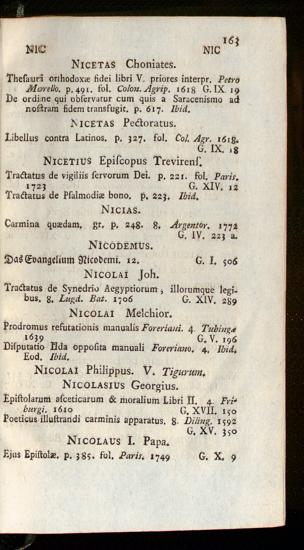 163
NIC NIC
NICETAS Choniates.
Thesauri orthodoxæ fidei libri V. priores interpr. Petro
Morello. p. 491. fol. Colon. Agrip. 1618 G. IX. 19
De ordine qui observatur cum quis a Saracenismo ad
nostram fidem transfugit. p. 617. Ibid.
NICETAS Pectoratus.
Libellus contra Latinos. p. 327. fol. Col. Agr. 1618.
G. IX. 18
NICETIUS Episcopus Trevirens.
Tractatus de vigiliis servorum Dei. p. 221. fol. Paris.
1723 G. XIV. 12
Tractatus de Psalmodiæ bono. p. 223. Ibid.
NICIAS.
Carmina quædam, gr. p. 248. 8. Argentor. 1772
G. IV. 223 a.
NICODEMUS.
Das Evangelium Nicodemi. 12. G. I. 506
NICOLAI Joh.
Tractatus de Synedrio Aegyptiorum, illorumque legi-
bus. 8. Lugd. Bat. 1706 G. XIV. 289
NICOLAI Melchior.
Prodromus refutationis manualis Foreriani. 4. Tubingæ
1639 G. V. 196
Disputatio IIda opposita manuali Foreriano. 4. Ibid.
Eod. Ibid.
NICOLAI Philippus. V. Tigurum.
NICOLASIUS Georgius.
Epistolarum asceticarum & moralium Libri II. 4. Fri-
burgi. 1610 G. XVII. 150
Poeticus illustrandi carminis apparatus. 8. Diling. 1592
G. XV. 350
NICOLAUS I. Papa.
Ejus Epistolæ. p. 385. fol. Paris. 1749 G. X. 9